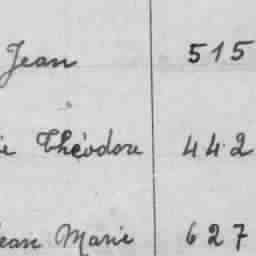 Jean 515
Théodore 442
Jean Marie 627